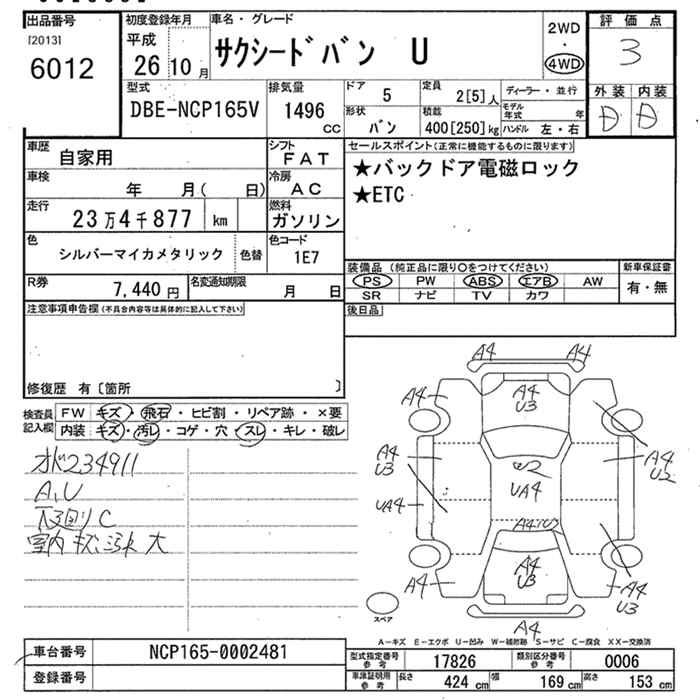 出品番号
[2013]
6012
初度登録年月
平成
26 10 月
車名・グレード
サクシードバン U
2WD
・
4WD
評価点
3
外装 内装
D D
型式
DBE-NCP165V
排気量
1496
CC
ドア
5
定員
2[5]人
形状
バン
積載
400[250]kg
ディーラー・並行
モデル年式 年
ハンドル 左・右
車歴
自家用
シフト
FAT
車検
年 月( 日)
冷房
AC
走行
23万4千877 km
燃料
ガソリン
色
シルバーマイカメタリック
色替
色コード
1E7
R券
7,440 円
名変通知期限
月 日
セールスポイント(正常に機能するものに限ります)
★バックドア電磁ロック
★ETC
装備品(純正品に限り○をつけてください)
PS PW ABS エアB AW
SR ナビ TV カワ
新車保証書
有・無
後日品
注意事項申告欄(不具合内容等は具体的に記入して下さい)
修復歴 有〔箇所 〕
検査員記入欄
FW キズ・飛石・ヒビ割・リペア跡・×要
内装 キズ・汚レ・コゲ・穴・スレ・キレ・破レ
234911
A,U
下回りC
室内キズ汚レ大
A4 A4
A4
A4
U3
A4
U3
A4
U2
U2
UA4
UA4
A4
U3
A4
A4
U3
A4
スペア
A-キズ E-エクボ U-凹み W-補修跡 S-サビ C-腐食 XX-交換済
車台番号
NCP165-0002481
登録番号
型式指定番号
参考
17826
類別区分番号
参考
0006
車庫証明用
参考
長さ 424 cm
幅 169 cm
高さ 153 cm